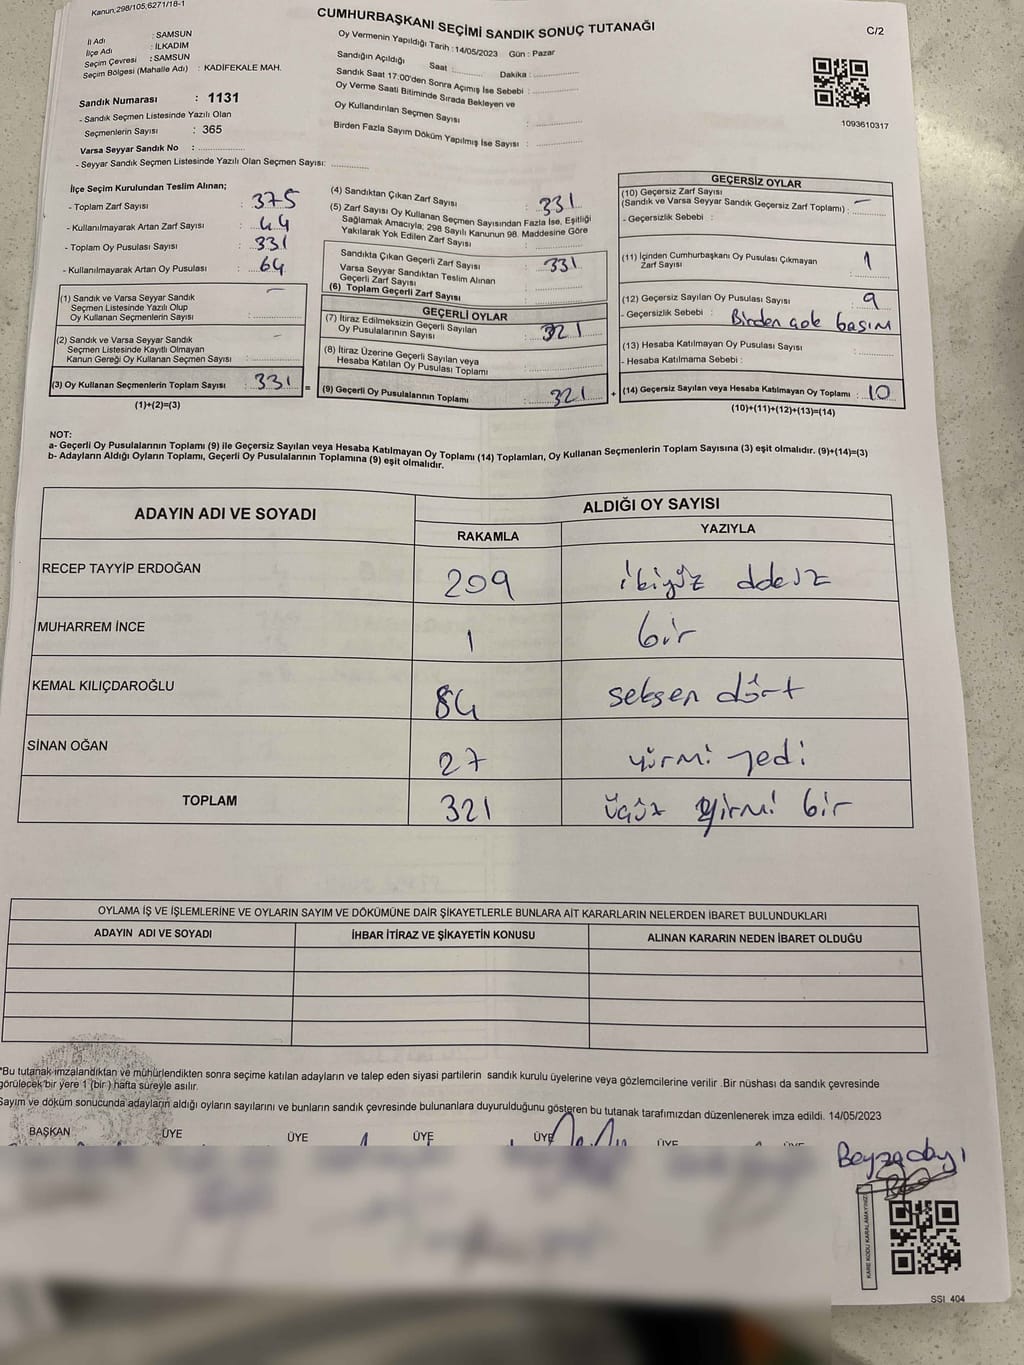 Kanun,298/105,6271/18-1
CUMHURBAŞKANI SEÇİMİ SANDIK SONUÇ TUTANAĞI
C/2
İl Adı : SAMSUN
İlçe Adı : İLKADIM
Seçim Çevresi : SAMSUN
Seçim Bölgesi (Mahalle Adı) : KADİFEKALE MAH.
Sandık Numarası : 1131
- Sandık Seçmen Listesinde Yazılı Olan
Seçmenlerin Sayısı : 365
Varsa Seyyar Sandık No :
- Seyyar Sandık Seçmen Listesinde Yazılı Olan Seçmen Sayısı:
Oy Vermenin Yapıldığı Tarih : 14/05/2023 Gün : Pazar
Sandığın Açıldığı Saat : Dakika :
Sandık Saat 17:00'den Sonra Açımış İse Sebebi :
Oy Verme Saati Bitiminde Sırada Bekleyen ve
Oy Kullandırılan Seçmen Sayısı :
Birden Fazla Sayım Döküm Yapılmış İse Sayısı :
1093610317
İlçe Seçim Kurulundan Teslim Alınan;
- Toplam Zarf Sayısı : 375
- Kullanılmayarak Artan Zarf Sayısı : 44
- Toplam Oy Pusulası Sayısı : 331
- Kullanılmayarak Artan Oy Pusulası : 64
(1) Sandık ve Varsa Seyyar Sandık
Seçmen Listesinde Yazılı Olup
Oy Kullanan Seçmenlerin Sayısı : –
(2) Sandık ve Varsa Seyyar Sandık
Seçmen Listesinde Kayıtlı Olmayan
Kanun Gereği Oy Kullanan Seçmen Sayısı : –
(3) Oy Kullanan Seçmenlerin Toplam Sayısı : 331 =
(1)+(2)=(3)
(4) Sandıktan Çıkan Zarf Sayısı : 331
(5) Zarf Sayısı Oy Kullanan Seçmen Sayısından Fazla İse, Eşitliği
Sağlamak Amacıyla; 298 Sayılı Kanunun 98. Maddesine Göre
Yakılarak Yok Edilen Zarf Sayısı :
Sandıkta Çıkan Geçerli Zarf Sayısı : 331
Varsa Seyyar Sandıktan Teslim Alınan
Geçerli Zarf Sayısı :
(6) Toplam Geçerli Zarf Sayısı :
GEÇERLİ OYLAR
(7) İtiraz Edilmeksizin Geçerli Sayılan
Oy Pusulalarının Sayısı : 321
(8) İtiraz Üzerine Geçerli Sayılan veya
Hesaba Katılan Oy Pusulası Toplamı :
(9) Geçerli Oy Pusulalarının Toplamı : 321 +
GEÇERSİZ OYLAR
(10) Geçersiz Zarf Sayısı
(Sandık ve Varsa Seyyar Sandık Geçersiz Zarf Toplamı) : –
- Geçersizlik Sebebi :
(11) İçinden Cumhurbaşkanı Oy Pusulası Çıkmayan
Zarf Sayısı : 1
(12) Geçersiz Sayılan Oy Pusulası Sayısı : 9
- Geçersizlik Sebebi : Birden çok basım
(13) Hesaba Katılmayan Oy Pusulası Sayısı :
- Hesaba Katılmama Sebebi :
(14) Geçersiz Sayılan veya Hesaba Katılmayan Oy Toplamı : 10
(10)+(11)+(12)+(13)=(14)
NOT:
a- Geçerli Oy Pusulalarının Toplamı (9) ile Geçersiz Sayılan veya Hesaba Katılmayan Oy Toplamı (14) Toplamları, Oy Kullanan Seçmenlerin Toplam Sayısına (3) eşit olmalıdır. (9)+(14)=(3)
b- Adayların Aldığı Oyların Toplamı, Geçerli Oy Pusulalarının Toplamına (9) eşit olmalıdır.
ADAYIN ADI VE SOYADI
ALDIĞI OY SAYISI
RAKAMLA YAZIYLA
RECEP TAYYİP ERDOĞAN 209 ikiyüz
MUHARREM İNCE 1 bir
KEMAL KILIÇDAROĞLU 84 seksen dört
SİNAN OĞAN 27 yirmi yedi
TOPLAM 321 üçyüz yirmi bir
OYLAMA İŞ VE İŞLEMLERİNE VE OYLARIN SAYIM VE DÖKÜMÜNE DAİR ŞİKAYETLERLE BUNLARA AİT KARARLARIN NELERDEN İBARET BULUNDUKLARI
ADAYIN ADI VE SOYADI İHBAR İTİRAZ VE ŞİKAYETİN KONUSU ALINAN KARARIN NEDEN İBARET OLDUĞU
*Bu tutanak imzalandıktan ve mühürlendikten sonra seçime katılan adayların ve talep eden siyasi partilerin sandık kurulu üyelerine veya gözlemcilerine verilir .Bir nüshası da sandık çevresinde
görülecek bir yere 1 (bir) hafta süreyle asılır.
Sayım ve döküm sonucunda adayların aldığı oyların sayılarını ve bunların sandık çevresinde bulunanlara duyurulduğunu gösteren bu tutanak tarafımızdan düzenlenerek imza edildi. 14/05/2023
BAŞKAN ÜYE ÜYE ÜYE ÜYE ÜYE ÜYE
KARE KODU KARALAMAYINIZ
SSİ_404